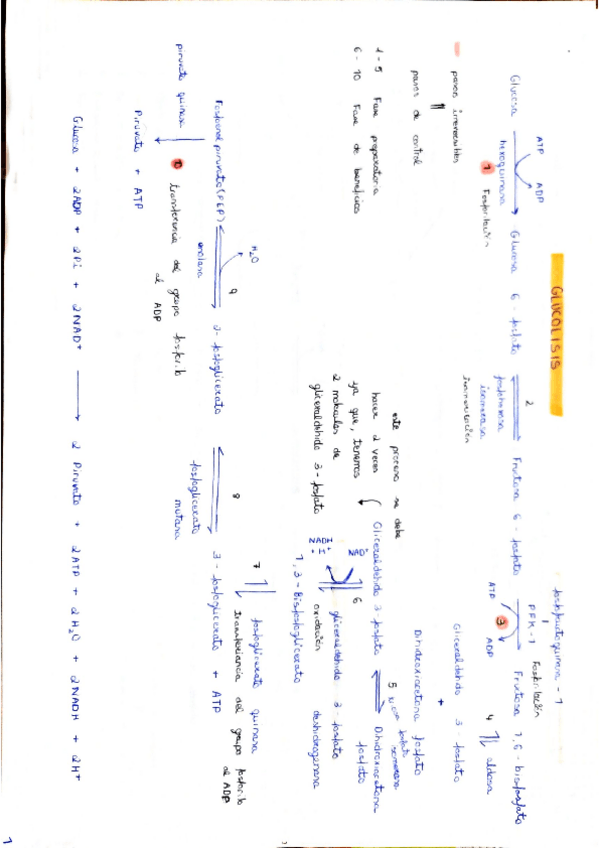 GLUCOLISIS
fosfofructoquinasa - 1
ATP ADP
2
PFK-1 Fosforilación
ATP ADP
Glucosa Glucosa 6 - fosfato Fructosa 6 - fosfato Fructosa 1,6 - bisfosfato
hexoquinasa
fosfohexosa
isomerasa
1 Fosforilación
3
isomerización
4 aldosa
pasos irreversibles
Gliceraldehído 3 - fosfato
+
pasos de control
Dihidroxiacetona fosfato
este proceso se debe
hacer 2 veces
ya que, tenemos
2 moléculas de
gliceraldehído 3 - fosfato
1 - 5 Fase preparatoria
6 - 10 Fase de beneficio
Gliceraldehído 3 - fosfato Dihidroxiacetona
fosfato
5
fosfato
isomerasa
NAD+
NADH
6
gliceraldehído 3 - fosfato
deshidrogenasa
oxidación
1,3 - Bisfosfoglicerato
7
fosfoglicerato quinasa
Transferencia del grupo fosforilo
al ADP
H2O
9
8
Fosfoenolpiruvato (PEP) 2 - fosfoglicerato 3 - fosfoglicerato + ATP
enolasa
fosfoglicerato
mutasa
piruvato quinasa
10 transferencia del grupo fosforilo
al ADP
Piruvato + ATP
Glucosa + 2ADP + 2Pi + 2NAD+ 2 Piruvato + 2ATP + 2H2O + 2NADH + 2H+
1